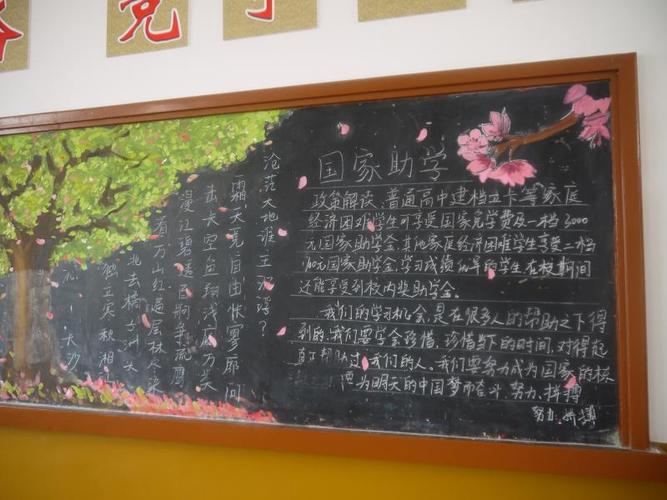 竞
沙
独立寒秋湘
北去橘子洲头
看万山红遍层林尽染
漫江碧透百舸争流鹰
击长空鱼翔浅底万类
霜天竞自由怅寥廓问
沧茫大地谁主沉浮？
国家助学
政策解读、普通高中建档立卡等家庭
经济困难学生可享受国家免学费及一档3000
元国家助学金.其他家庭经济困难学生享受二档
元国家助学金.学习成绩优异的学生在校期间
还能享受到校内奖助学金。
我们的学习机会,是在很多人的帮助之下得
到的,我们要学会珍惜,珍惜当下的时间,对得起
真正帮助过我们的人。我们要努力成为国家的栋
为明天的中国梦而奋斗、努力、拼搏
努力、拼搏